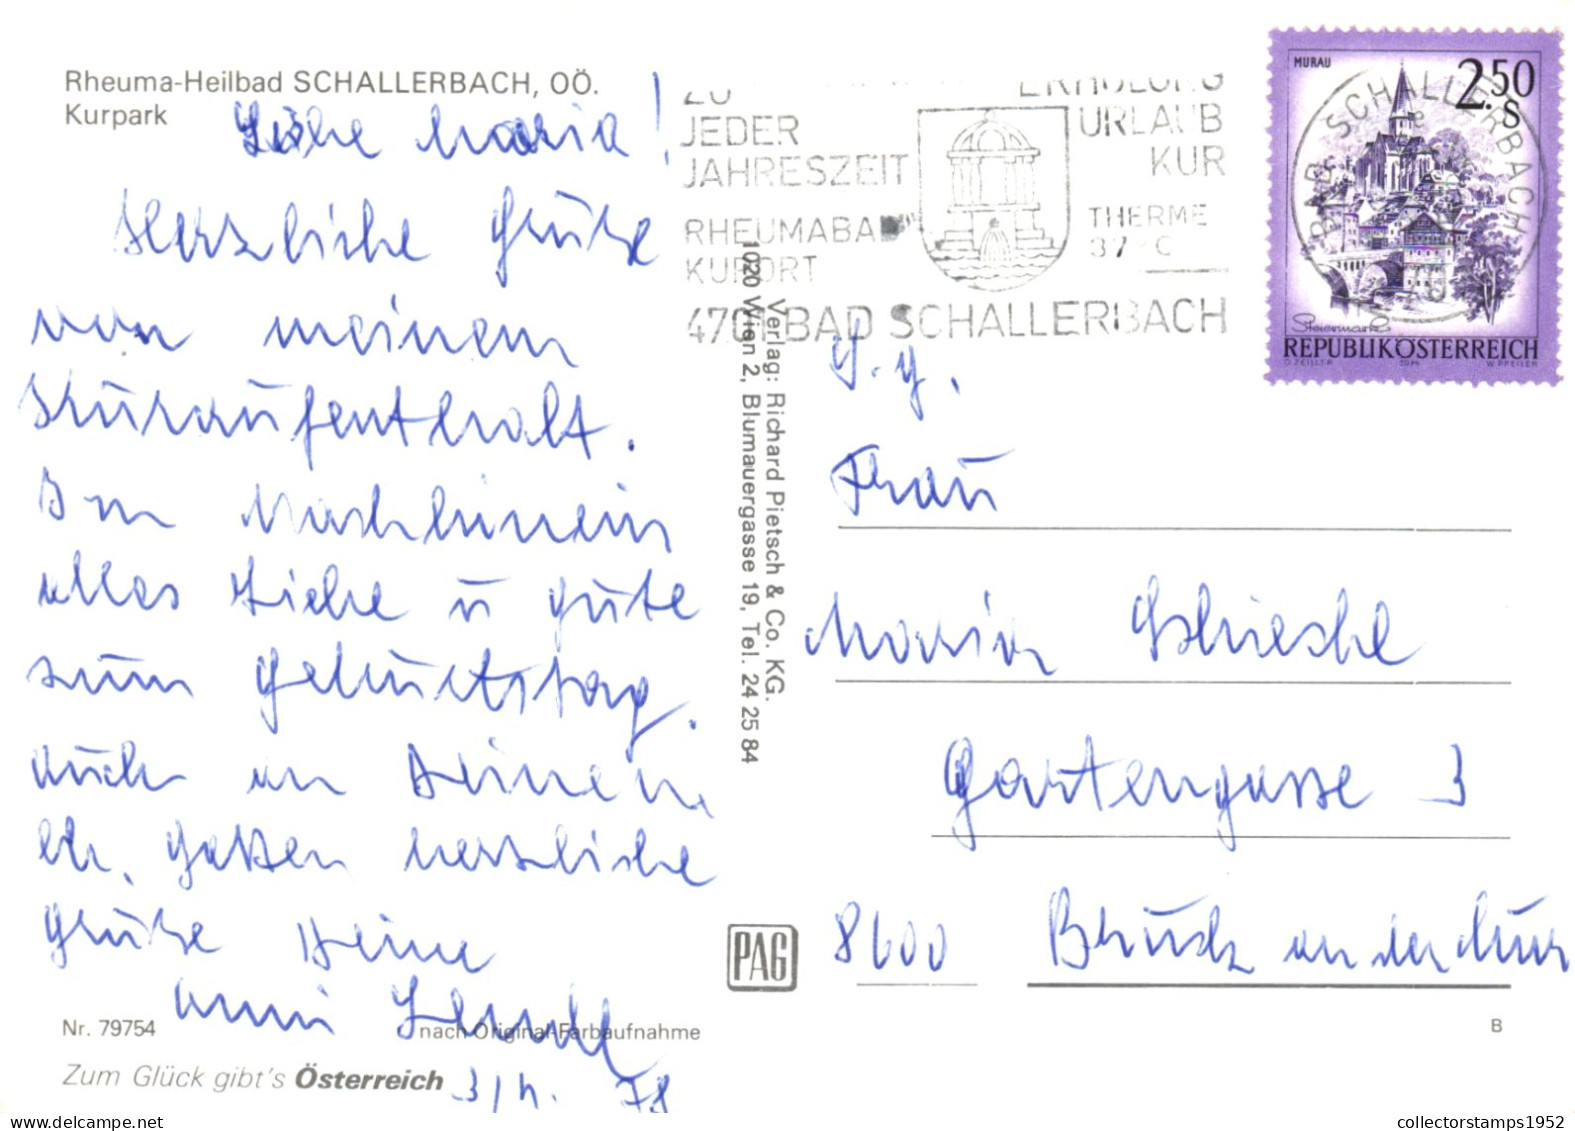 Rheuma-Heilbad SCHALLERBACH, OÖ.
Kurpark
Liebe Maria!
Herzliche Grüße
von meinem
Kuraufenthalt.
Im Nachhinein
alles Liebe u gute
zum Geburtstag.
Auch an Deinen
lb. Gatten herzliche
Grüße Deine
Anni
3/4. 78
Nr. 79754
nach Original-Farbaufnahme
Zum Glück gibt's Österreich
Verlag: Richard Pietsch & Co. KG.
1020 Wien 2, Blumauergasse 19, Tel. 24 25 84
PAG
ZU
JEDER
JAHRESZEIT
RHEUMABAD
KURORT
ERHOLUNG
URLAUB
KUR
THERME
37°C
4701 BAD SCHALLERBACH
MURAU
2.50
S
Steiermark
REPUBLIK ÖSTERREICH
O. ZEILLER 1974 W. PFEILER
BAD SCHALLERBACH
S. g.
Frau
Maria
Gartengasse 3
8600 Bruck an der Mur
B
collectorstamps1952